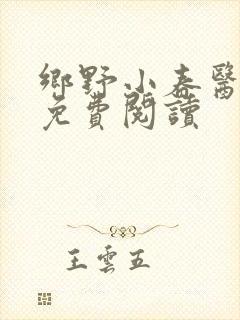 鄉野小春醫
免費閱讀
王雲五